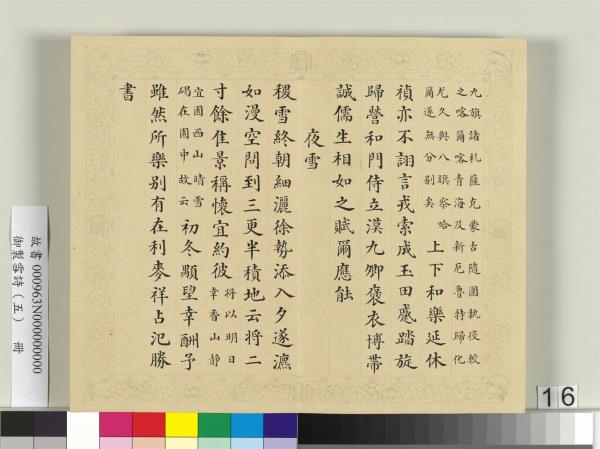 九旗諸札薩克蒙古隨圍執役較
之喀爾喀青海及新厄魯特歸化
尤久與八旗察哈
爾遂無分别矣
上下和樂延休
禎亦不詡言戎索成玉田蹙踏旋
歸營和門侍立漠九卿褒衣博帶
誠儒生相如之賦爾應能
夜雪
稷雪終朝細灑徐勢添入夕遂瀌
如漫空問到三更半積地云將二
寸餘佳景稱懷宜約彼
將以明日
幸香山静
宜園西山晴雪
碣在園中故云
初冬顒望幸酬予
雖然所樂别有在利麥祥占氾勝
書
故書 000963N000000000
御製雪詩(五) 冊
16